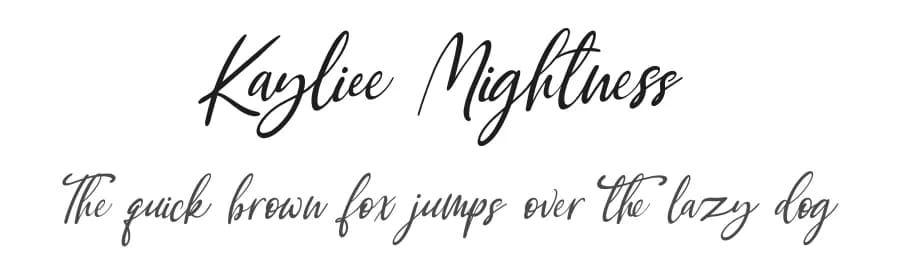 Kayliee Mightness
The quick brown fox jumps over the lazy dog